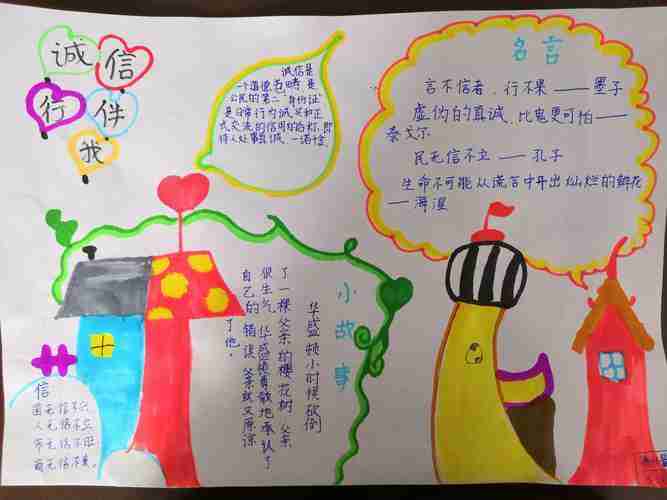 诚信
行伴
我
诚信是
一个道德范畴是
公民的第二"身份证"
是日常行为诚实和正
式交流的信用的合称.即
待人处事真诚、一诺
名言
言不信者，行不果——墨子
虚伪的真诚，比鬼更可怕——
泰戈尔
民无信不立——孔子
生命不可能从谎言中开出灿烂的鲜花
——海涅
小故事
华盛顿小时候砍倒
了一棵父亲的樱花树 父亲
很生气 华盛顿勇敢地承认了
自己的错误 父亲就又原谅
了他。
信
国无信不兴
人无信不立
市无信不旺
商无信不隆。